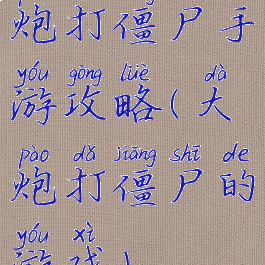 炮打僵尸手
yóu gōng lüè dà
游攻略(大
pào dǎ jiāng shī de
炮打僵尸的
yóu xì
游戏)